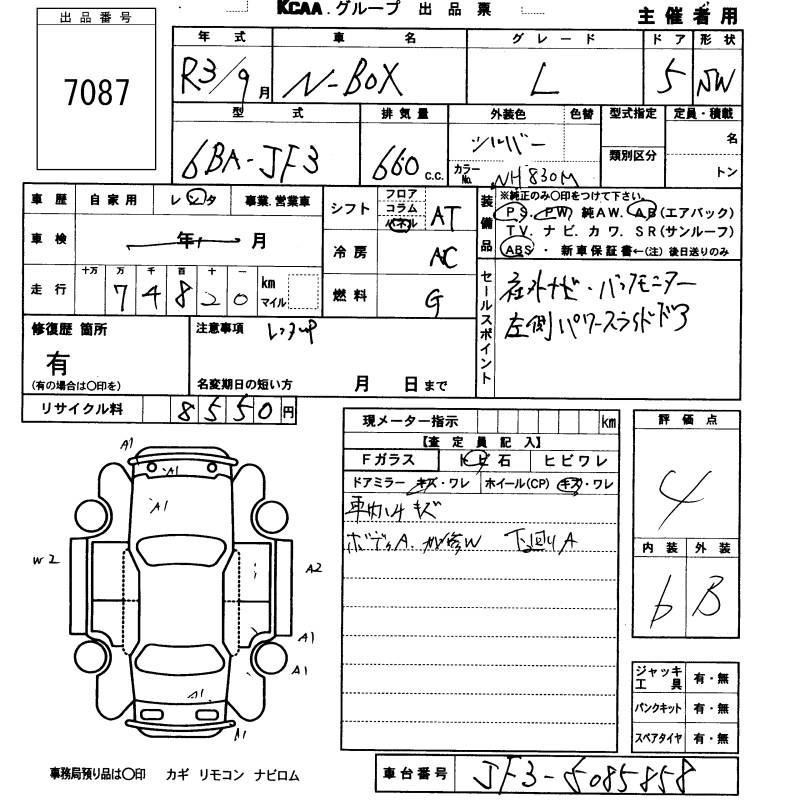 KCAA.グループ 出品票
主催者用
出品番号
7087
年式 車名 グレード ドア 形状
R3/9月 N-BOX L 5 5W
型式 排気量 外装色 色替 型式指定 定員・積載
6BA-JF3 660 c.c. シルバー 名
カラーNo. NH830M 類別区分 トン
車歴 自家用 レンタ 事業.営業車
車検 年 月
走行 十万 万 千 百 十 一
7 4 8 2 0 km マイル
シフト フロア コラム パネル AT
冷房 AC
燃料 G
装備品 ※純正のみ○印をつけて下さい。
PS.PW 純AW.AB(エアバック)
TV.ナビ.カワ.SR(サンルーフ)
ABS・新車保証書←(注)後日送りのみ
セールスポイント
社外ナビ・バックモニター
左側パワースライドドア
修復歴 箇所
有
(有の場合は○印を)
注意事項 レンタup
名変期日の短い方 月 日まで
リサイクル料 8550円
現メーター指示 km
【査定員記入】
Fガラス トビ石 ヒビワレ
ドアミラー キズ・ワレ ホイール(CP) キズ・ワレ
キズ
ボディA. W 下廻りA
評価点
4
内装 外装
b B
A1
A1
A1
W2
A2
A1
A1
A1
A1
ジャッキ工具 有・無
パンクキット 有・無
スペアタイヤ 有・無
事務局預り品は○印 カギ リモコン ナビロム
車台番号 JF3-5085858